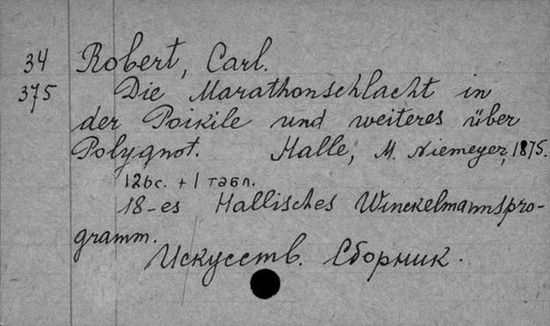 34 Robert, Carl.
375 Die Marathonschlacht in
der Poikile und weiteres über
Polygnot. Halle, M. Niemeyer, 1875.
126с. + 1 табл.
18-es Hallisches Winckelmannspro-
gramm.
Искусств. Сборник.